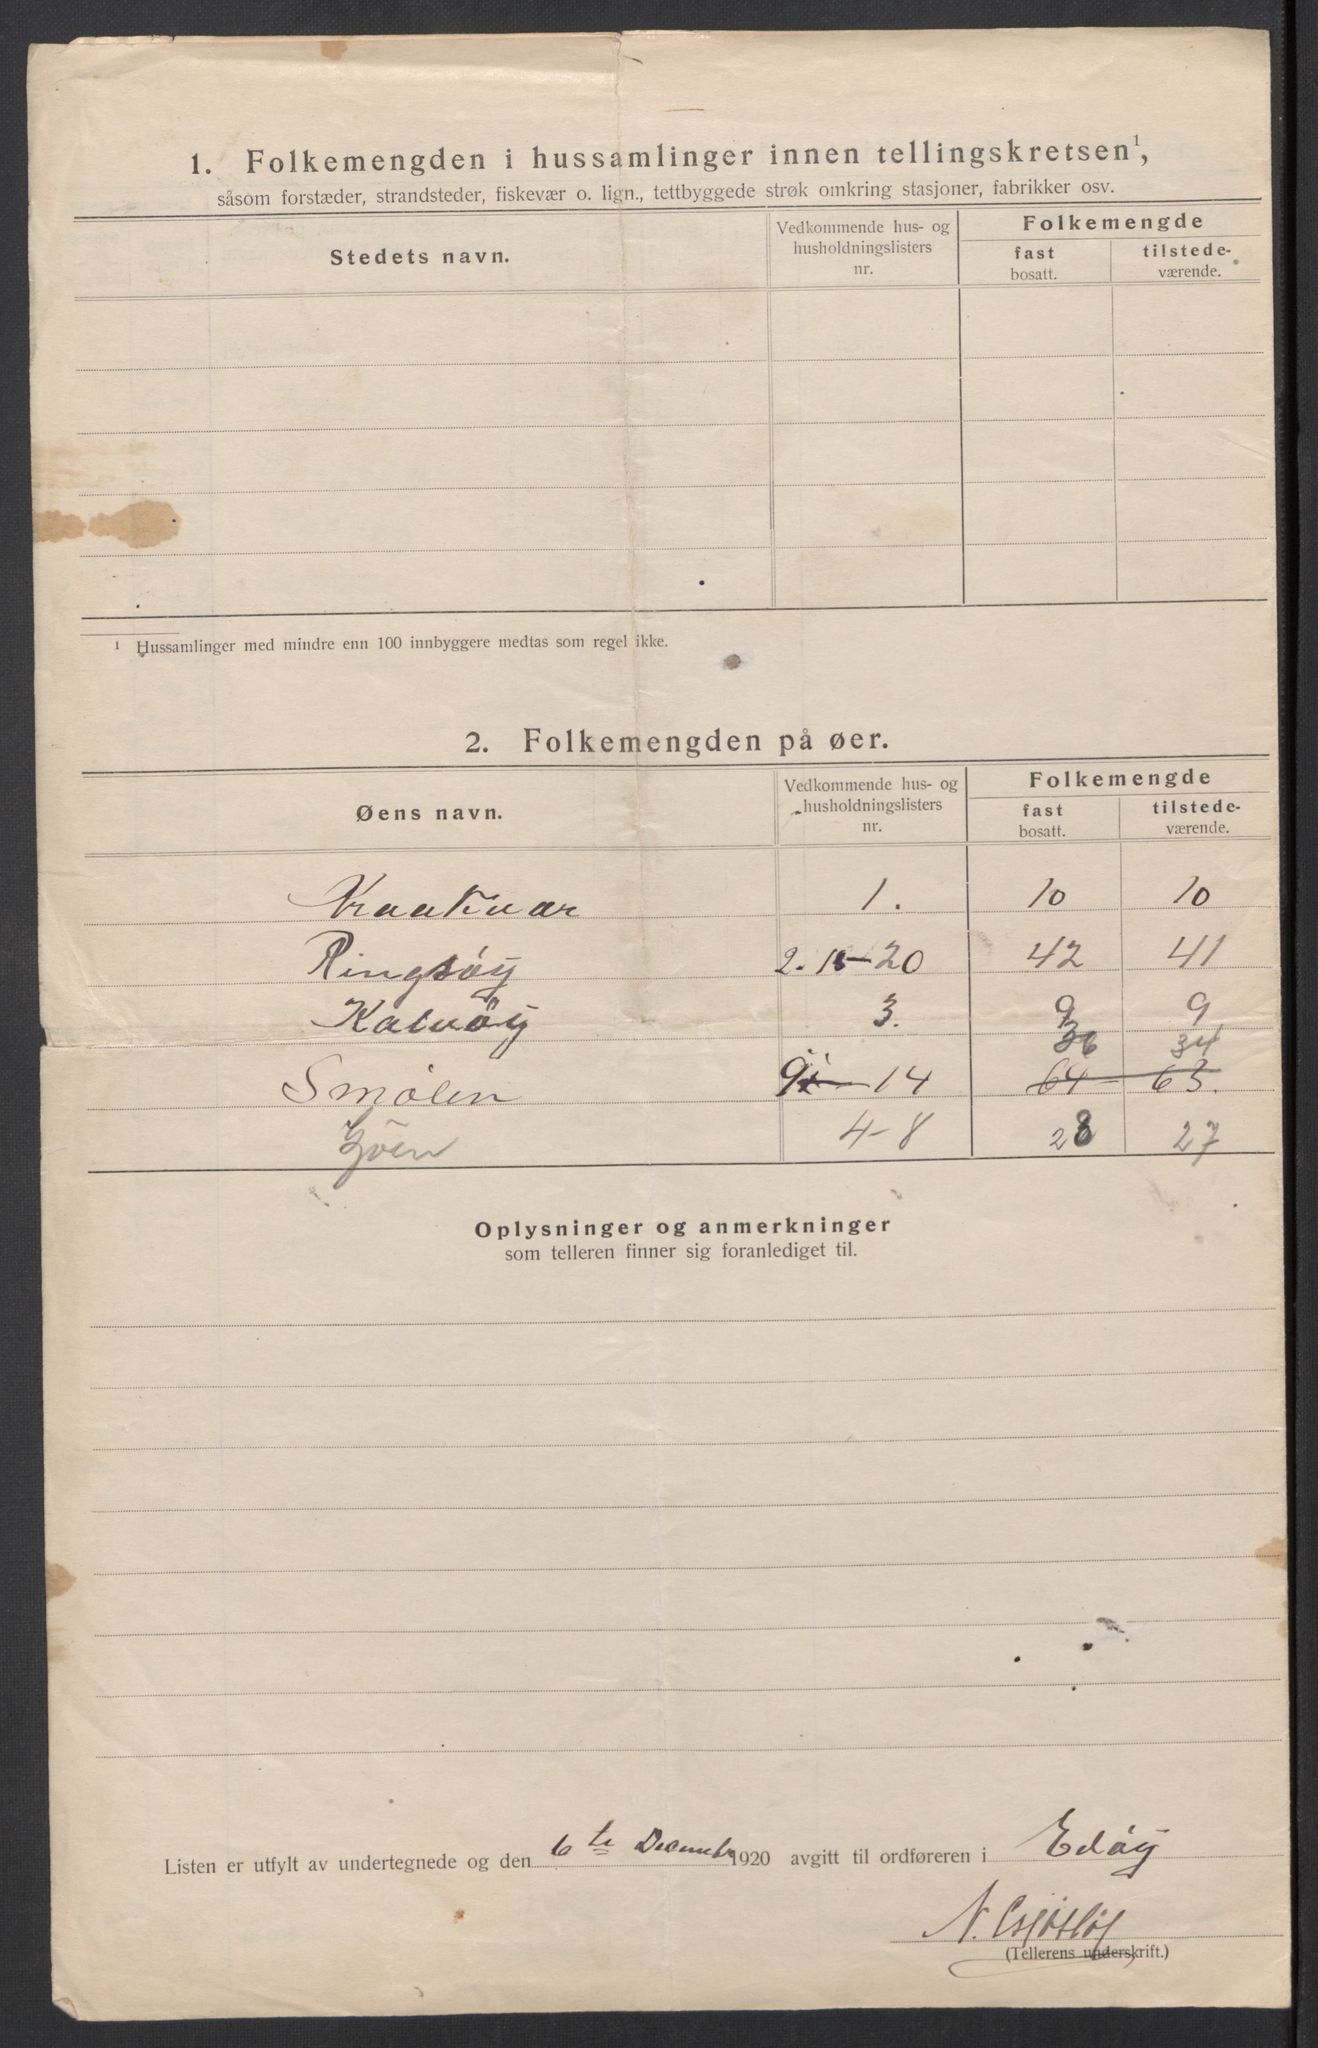 1. Folkemengden i hussamlinger innen tellingskretsen¹,
såsom forstæder, strandsteder, fiskevær o. lign., tettbyggede strøk omkring stasjoner, fabrikker osv.
Stedets navn.
Vedkommende hus- og husholdningslisters nr.
Folkemengde
fast bosatt.
tilstede-værende.
¹ Hussamlinger med mindre enn 100 innbyggere medtas som regel ikke.
2. Folkemengden på øer.
Øens navn.
Vedkommende hus- og husholdningslisters nr.
Folkemengde
fast bosatt.
tilstede-værende.
Kraakvær 1. 10 10
Ringsöy 2. 15-20 42 41
Kalvöy 3. 9 9
36 34
Smölen 9 - 14 64 63.
4-8 28 27
Oplysninger og anmerkninger
som telleren finner sig foranlediget til.
Listen er utfylt av undertegnede og den 6te Decembr 1920 avgitt til ordføreren i Edöy
N.
(Tellerens underskrift.)